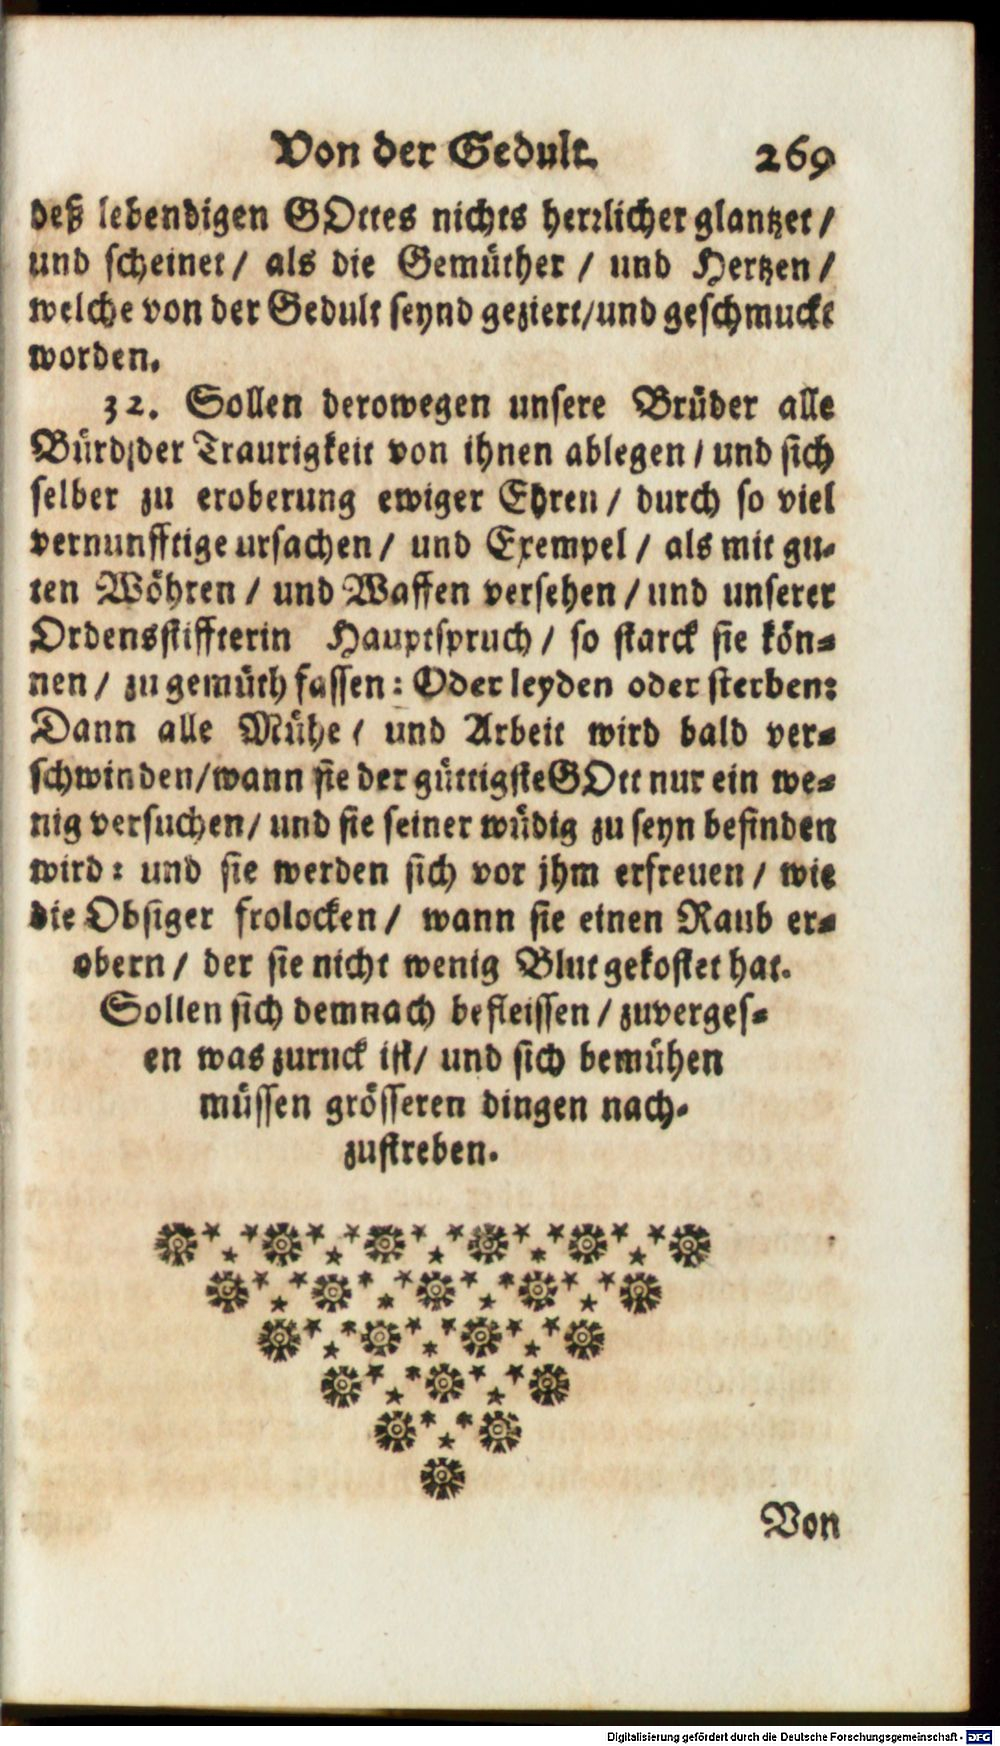 Von der Gedult. 269
deß lebendigen GOttes nichts herꝛlicher glantzet /
und scheinet / als die Gemüther / und Hertzen /
welche von der Gedult seynd geziert/und geschmuckt
worden.
32. Sollen derowegen unsere Brüder alle
Bürd der Traurigkeit von ihnen ablegen / und sich
selber zu eroberung ewiger Ehren / durch so viel
vernunfftige ursachen / und Exempel / als mit gu-
ten Wöhren / und Waffen versehen / und unserer
Ordensstiffterin Hauptspruch / so starck sie kön-
nen / zu gemüth fassen: Oder leyden oder sterben:
Dann alle Mühe / und Arbeit wird bald ver-
schwinden/wann sie der güttigste GOtt nur ein we-
nig versuchen/ und sie seiner wüdig zu seyn befinden
wird: und sie werden sich vor jhm erfreuen / wie
die Obsiger frolocken / wann sie einen Raub er-
obern / der sie nicht wenig Blut gekostet hat.
Sollen sich demnach befleissen / zuverges-
en was zuruck ist/ und sich bemühen
müssen grösseren dingen nach-
zustreben.
Von
Digitalisierung gefördert durch die Deutsche Forschungsgemeinschaft - DFG